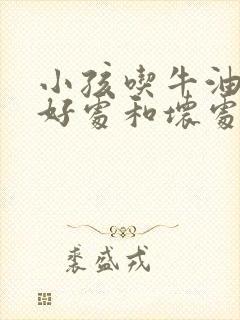 小孩喫牛油
好處和壞處
裘盛戎